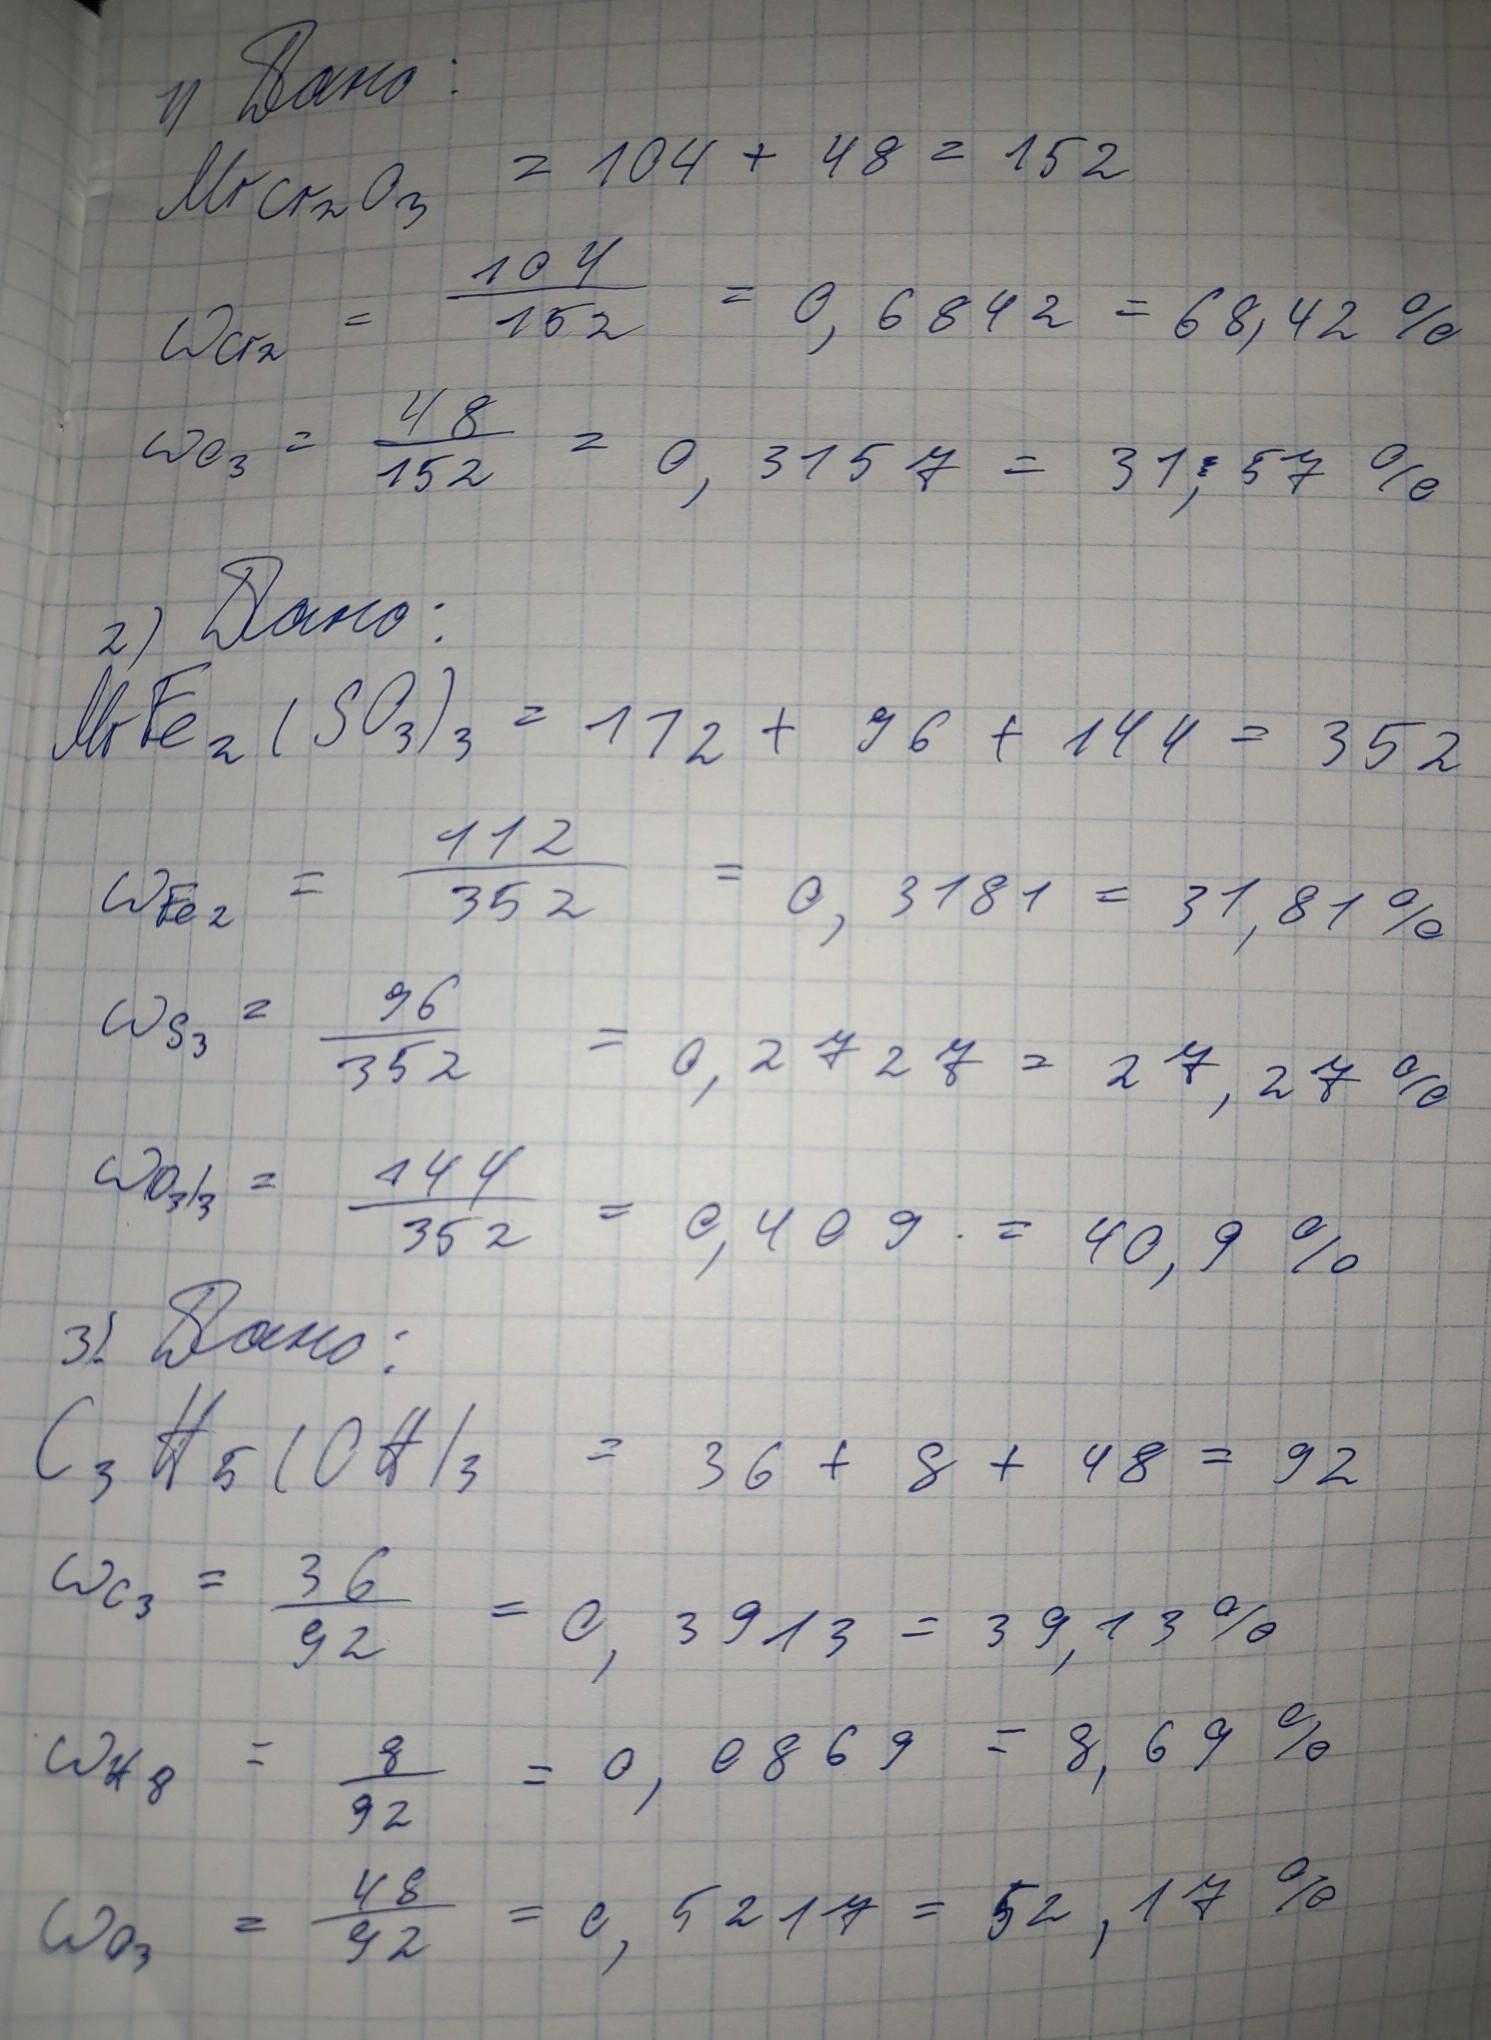 1) Дано:
MrCr₂O₃ = 104 + 48 = 152
ωCr₂ = 104/152 = 0,6842 = 68,42 %
ωO₃ = 48/152 = 0,3157 = 31,57 %
2) Дано:
MrFe₂(SO₃)₃ = 112 + 96 + 144 = 352
ωFe₂ = 112/352 = 0,3181 = 31,81 %
ωS₃ = 96/352 = 0,2727 = 27,27 %
ωO₃)₃ = 144/352 = 0,409 = 40,9 %
3) Дано:
C₃H₅(OH)₃ = 36 + 8 + 48 = 92
ωC₃ = 36/92 = 0,3913 = 39,13 %
ωH₈ = 8/92 = 0,0869 = 8,69 %
ωO₃ = 48/92 = 0,5217 = 52,17 %